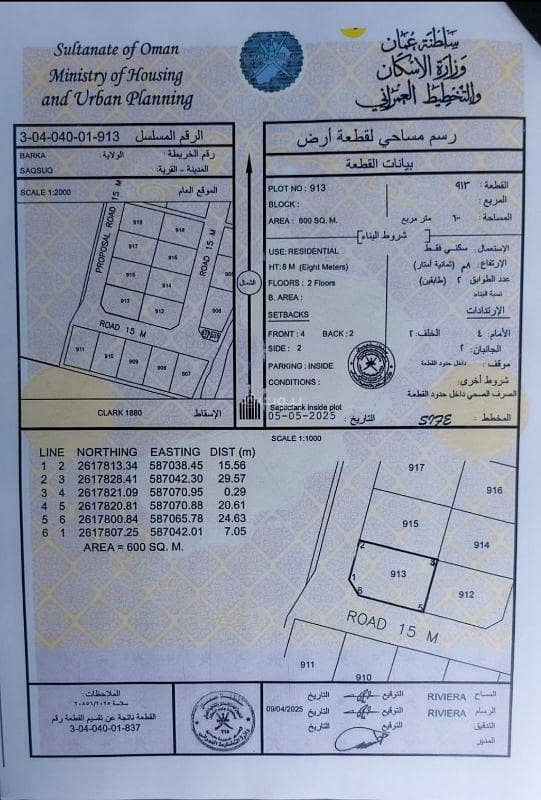 Sultanate of Oman
Ministry of Housing
and Urban Planning
سلطنة عمان
وزارة الإسكان
والتخطيط العمراني
3-04-040-01-913 الرقم المسلسل
BARKA الولاية: رقم الخريطة
SAQSUQ المدينة - القرية:
SCALE 1:2000 الموقع العام
PROPOSAL ROAD 15 M
ROAD 15 M
919 918
917 916
915 914
913 912
905
906
ROAD 15 M
911 910 909 908 907
CLARK 1880 الإسقاط
الشمال
رسم مساحي لقطعة أرض
بيانات القطعة
PLOT NO : 913 القطعة : ٩١٣
BLOCK : المربع :
AREA : 600 SQ. M. المساحة : ٦٠٠ متر مربع
شروط البناء
USE: RESIDENTIAL الإستعمال: سكني فقط
HT: 8 M (Eight Meters) الإرتفاع: ٨م (ثمانية أمتار)
FLOORS : 2 Floors عدد الطوابق ٢ (طابقين)
B. AREA : نسبة البناء
SETBACKS الإرتدادات
FRONT : 4 BACK : 2 الأمام: ٤ الخلف: ٢
SIDE : 2 الجانبان: ٢
PARKING : INSIDE موقف : داخل حدود القطعة
CONDITIONS : شروط أخرى:
الصرف الصحي داخل حدود القطعة
Septictank inside plot
05-05-2025 التاريخ : SIFE المخطط :
SCALE 1:1000
LINE NORTHING EASTING DIST (m)
1 2 2617813.34 587038.45 15.56
2 3 2617828.41 587042.30 29.57
3 4 2617821.09 587070.95 0.29
4 5 2617820.81 587070.88 20.61
5 6 2617800.84 587065.78 24.63
6 1 2617807.25 587042.01 7.05
AREA = 600 SQ. M.
917
916
915
914
2
3
913
1
6
5
912
ROAD 15 M
911
910
الملاحظات:
سلامة ٢٠٨٥٦/٢٠٢٥
القطعة ناتجة عن تقسيم القطعة رقم
3-04-040-01-837
09/04/2025 التاريخ التوقيع RIVIERA المساح
التاريخ التوقيع RIVIERA الرسام
التاريخ التوقيع التدقيق
المدير